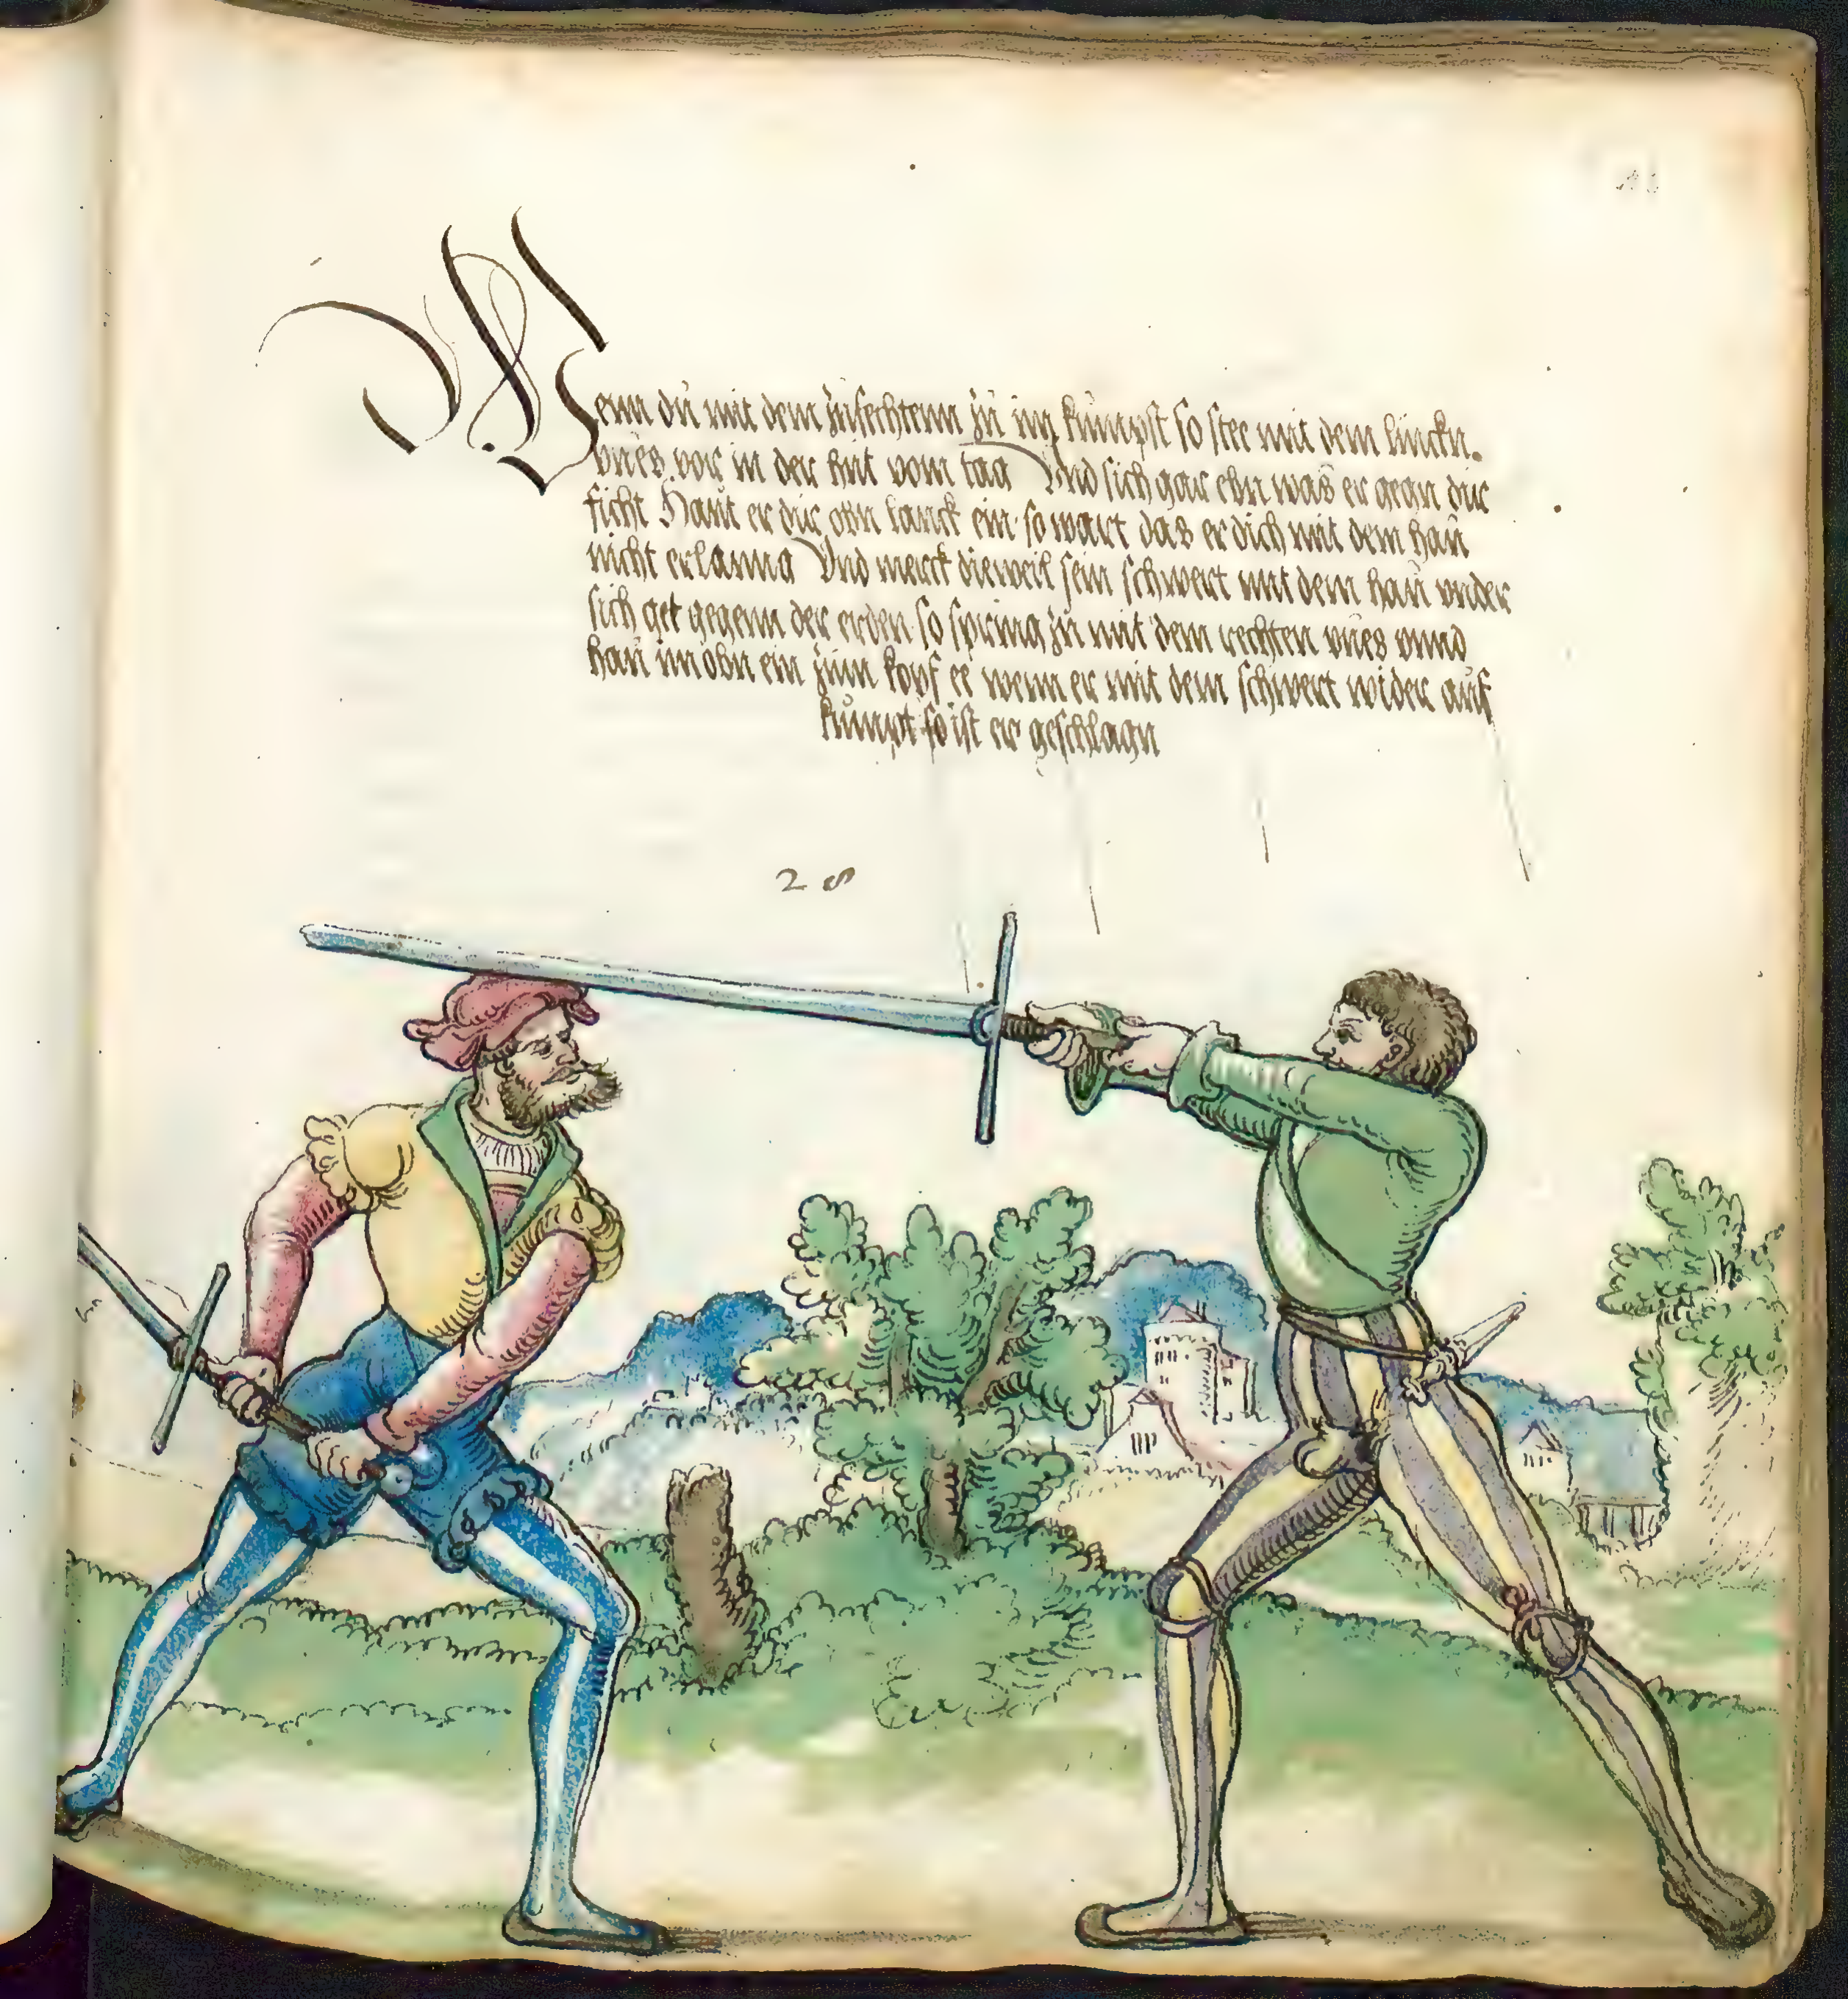 Wenn dü mit dem züfechtenn zü im kümpst so stee mit dem lincken
vües vor in der hüt vom tag Vnd sich gar ebn was er gegn dir
ficht Haüt er dir obn lanck ein so wart das er dich mit dem haü
nicht erlanng Vnd merck dieweil sein schwert mit dem haü vnder
sich get gegenn der erden so spring zü mit dem rechten vües vnnd
haü im obn ein züm kopf ee wenn er mit dem schwert wider aüf
kümpt so ist er geschlagn
28